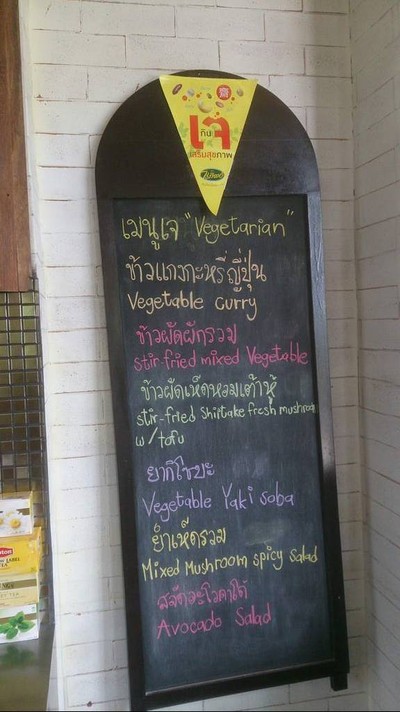 齋
กิน
เจ
เสริมสุขภาพ
เมนูเจ "Vegetarian"
ข้าวแกงกะหรี่ญี่ปุ่น
Vegetable curry
ข้าวผัดผักรวม
stir-fried mixed Vegetable
ข้าวผัดเห็ดหอมเต้าหู้
stir-fried Shiitake fresh mushroom
w/tofu
ยากิโซบะ
Vegetable Yaki soba
ยำเห็ดรวม
Mixed Mushroom spicy Salad
สลัดอะโวคาโด้
Avocado Salad